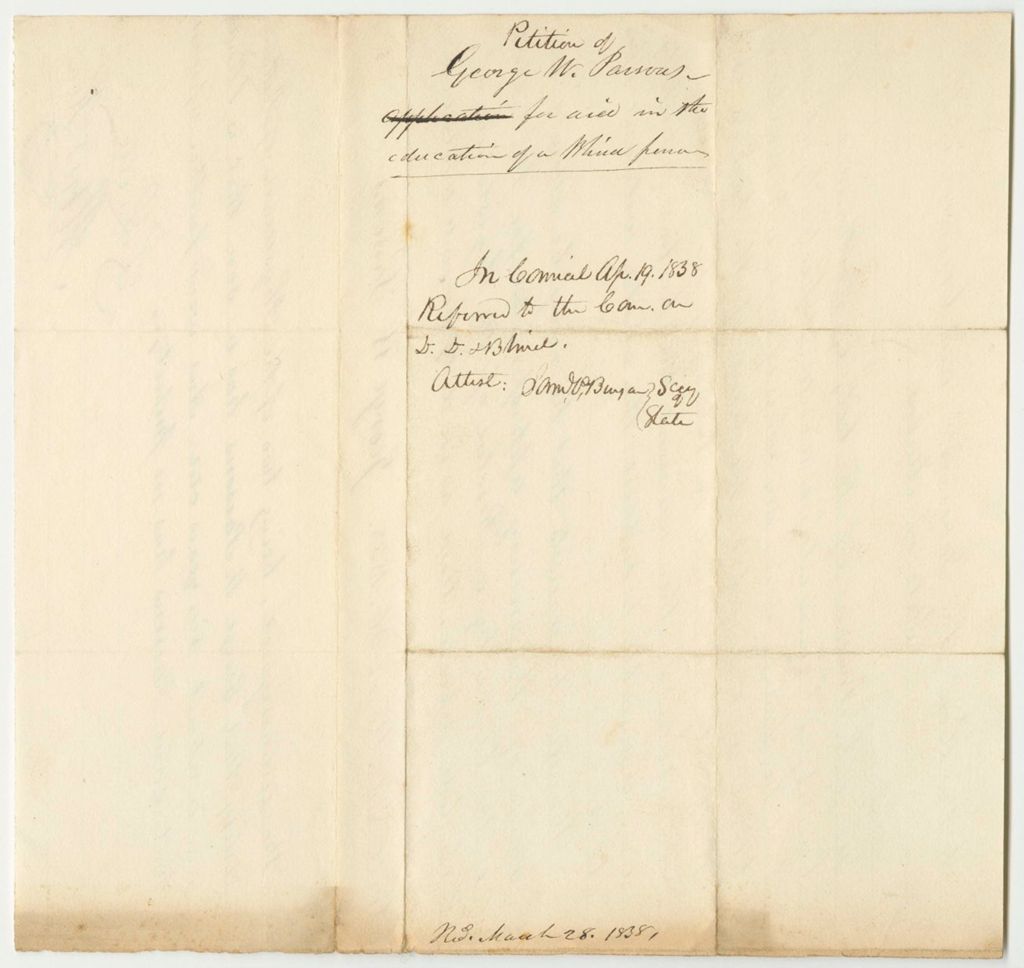 Petition of
George W. Parsons
application for aid in the
education of a blind person
In Council Ap. 19. 1838
Referred to the Com. on
D. D. & Blind.
Attest: Saml P. Secy
of
State
Recd. March 28. 1838,